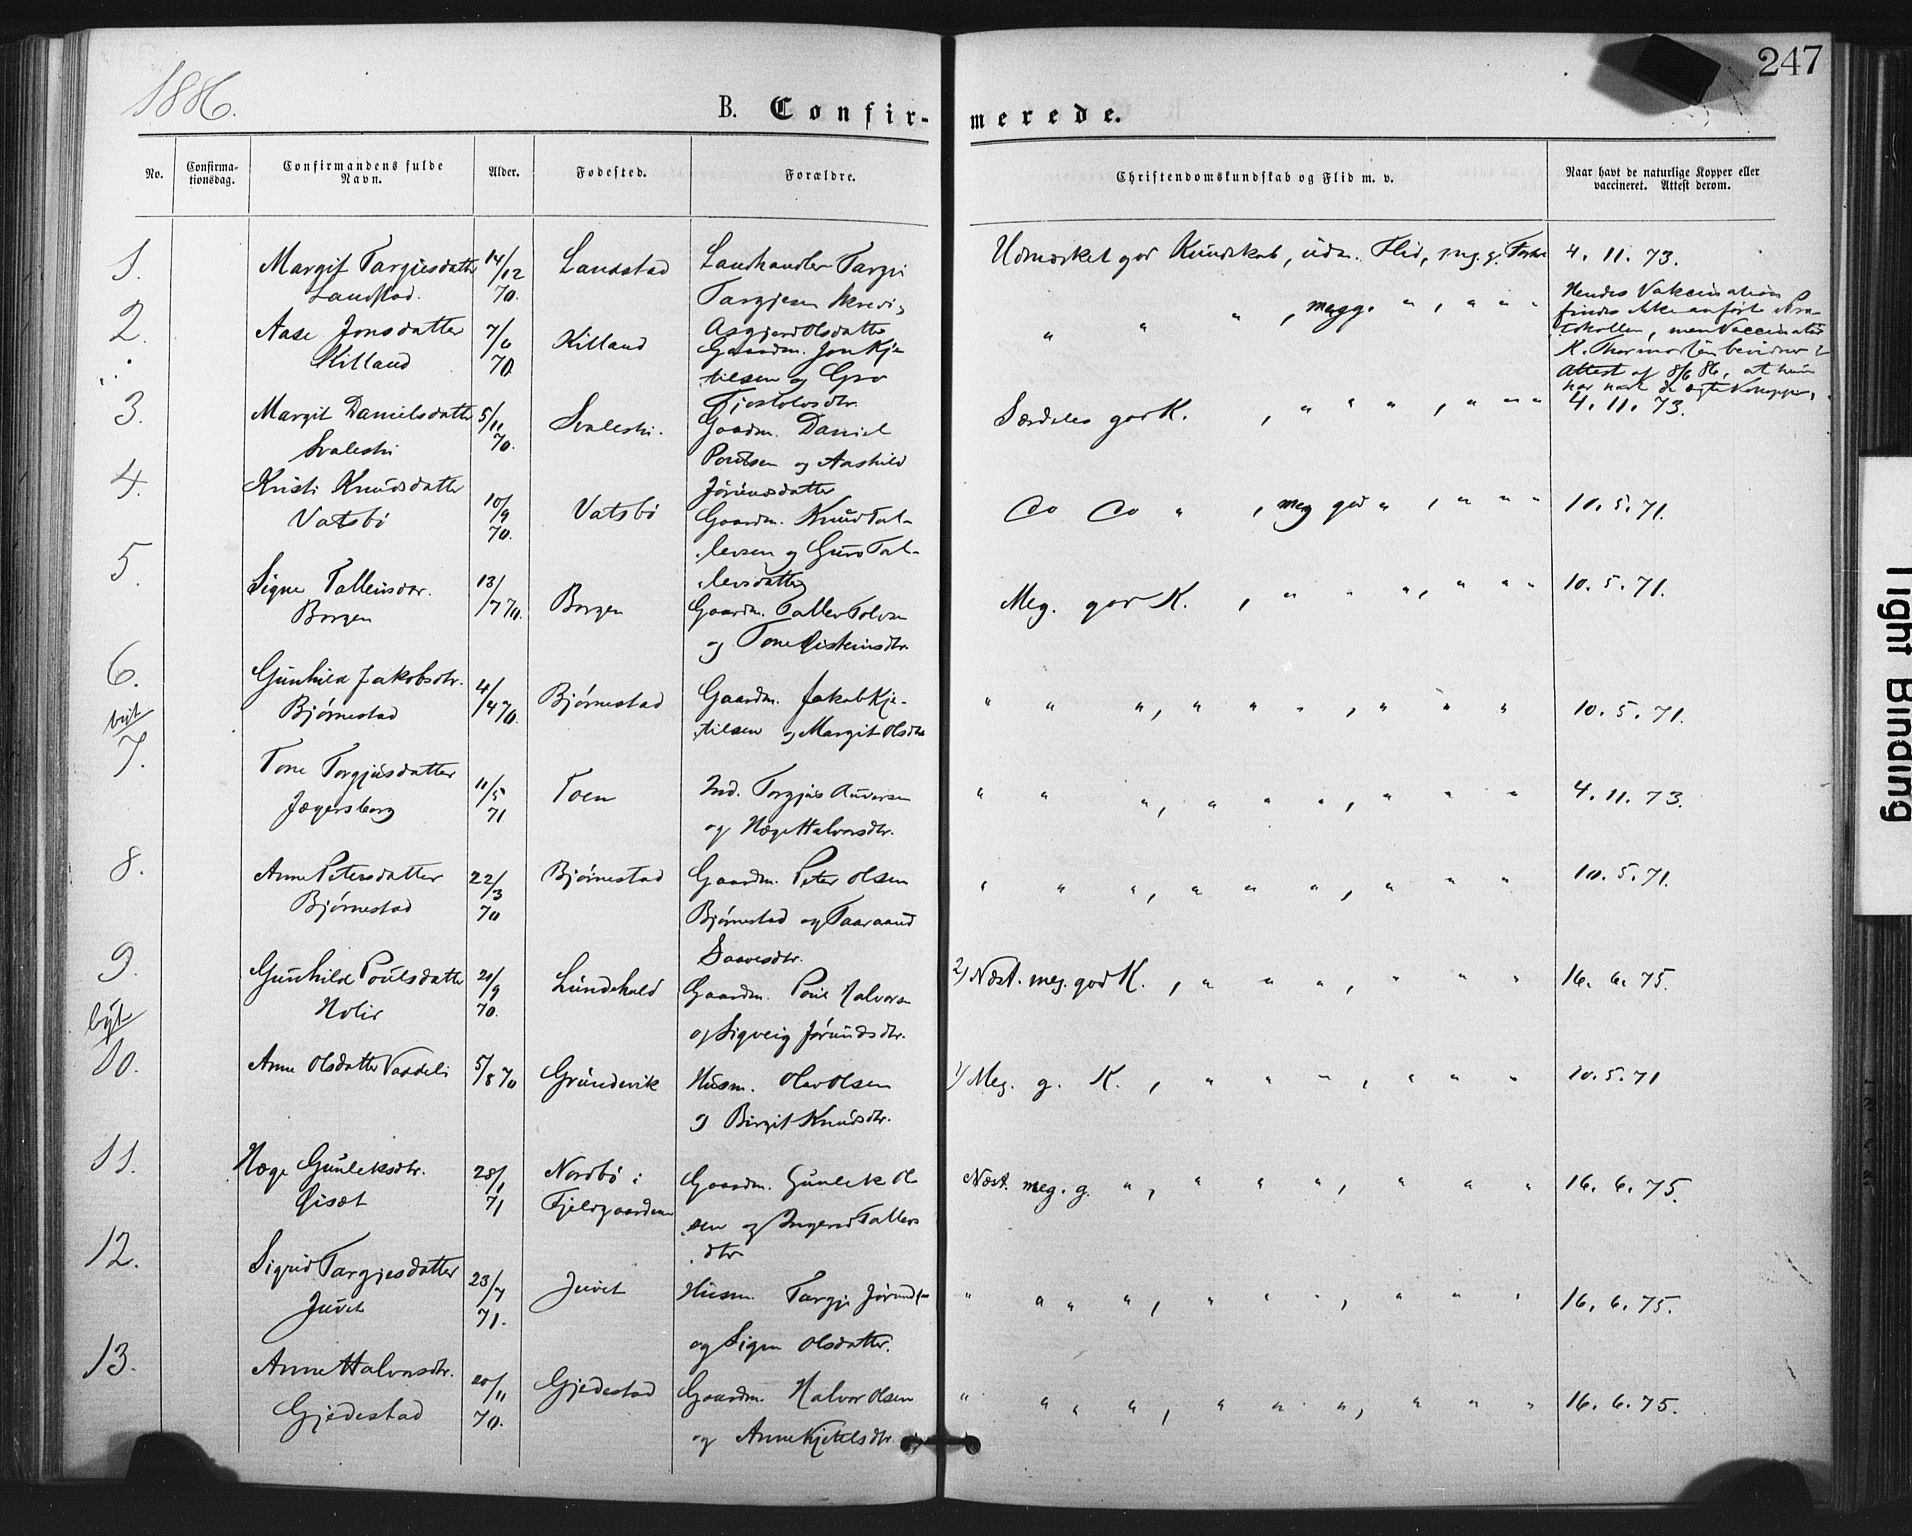 247
1886.
B. Confir-
merede.
No.
Confirma-
tionsdag.
Confirmandens fulde
Navn.
Alder.
Fødested.
Forældre.
Christendomskundskab og Flid m. v.
Naar havt de naturlige Kopper eller
vaccineret. Attest derom.
1.
Margit Targjesdatter
Landstad.
14/12
70.
Landstad
Landhandler Targje
Targjesen
Asgjerd Olsdatter
Udmærket god Kundskab, udm. Flid, mg. g. Forh.
4. 11. 73.
2.
Aase Jonsdatter
Killand
7/6
70.
Killand
Gaardm. Jon Kje-
tilsen og Gro
Fjostolvsdtr.
" " " , megg. " , " " "
Hendes Vakcination
findes ikke anført i Pro-
tokollen, men Vaccinatør
K. Thormodsen bevidner i
Attest af 8/6 86, at hun
har havt de ægte Kokopper.
3.
Margit Danielsdatter
Svalestu
5/11
70.
Svalestu.
Gaardm. Daniel
Poulsen og Aashild
Jørundsdatter
Særdeles god K. , " " " , " " "
4. 11. 73.
4.
Kristi Knudsdatter
Vatsbø
10/9
70.
Vatsbø
Gaardm. Knud Tal-
levsen og Guro Tal-
levsdatter
Do Do " , meg god " , " " "
10. 5. 71.
5.
Signe Tallevsdtr.
Borgen
13/7 70.
Borgen
Gaardm. Tallev Tolvsen
og Tone Eisteinsdtr.
Meg. god K. , " " " , " " "
10. 5. 71.
6.
Gunhild Jakobsdtr.
Bjørnestad
4/4 70.
Bjørnestad
Gaardm. Jakob Kje-
tilsen og Margit Olsdtr
" " " , " " " , " " "
10. 5. 71.
byt
7.
Tone Torgjusdatter
Jægersborg
11/5
71
Toen
Ind. Torgjus Auversen
og Hæge Halvorsdtr.
" " " , " " " , " " "
4. 11. 73.
8.
Anne Petersdatter
Bjørnestad
22/3
70
Bjørnestad
Gaardm. Peter Olsen
Bjørnestad og Taaraand
Saavesdtr.
" " " , " " " , " " "
10. 5. 71.
9.
Gunhild Poulsdatter
Holir
21/9
70.
Lundekold
Gaardm. Poul Halvorsen
og Sigveig Jørundsdtr.
2) Næst. meg. god K. , " " " , " " "
16. 6. 75.
byt
10.
Anne Olsdatter Vaddeli
5/8 70
Grundevik
Husm. Olav Olsen
og Birgit Knudsdtr.
1) Meg. g. K. , " " " , " " "
10. 5. 71
11.
Hæge Gunleksdtr.
Qisæt
28/1
71
Nordbø i
Fjeldgaardene
Gaardm. Gunlek Ol-
sen og Ingerid Tallevs
dtr
Næst. meg. g. " , " " " , " " "
16. 6. 75.
12.
Sigrid Targjesdatter
Juvet
23/7
71.
Juvet
Husm. Targje Jørundsen
og Signe Olsdatter.
" " " " , " " " , " " "
16. 6. 75.
13.
Anne Halvorsdtr.
Gjedestad
20/11
70.
Gjedestad
Gaardm. Halvor Olsen
og Anne Kjetilsdtr.
" " " " , " " " , " " "
16. 6. 75.
Tight Binding